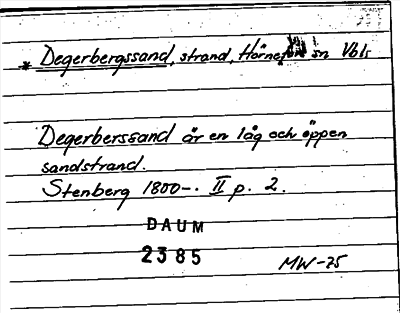 * Degerbergssand, strand, Hörnefors sn Vbls
Degerberssand är en låg och öppen
sandstrand.
Stenberg 1800-. II p. 2.
DAUM
2385
MW-75